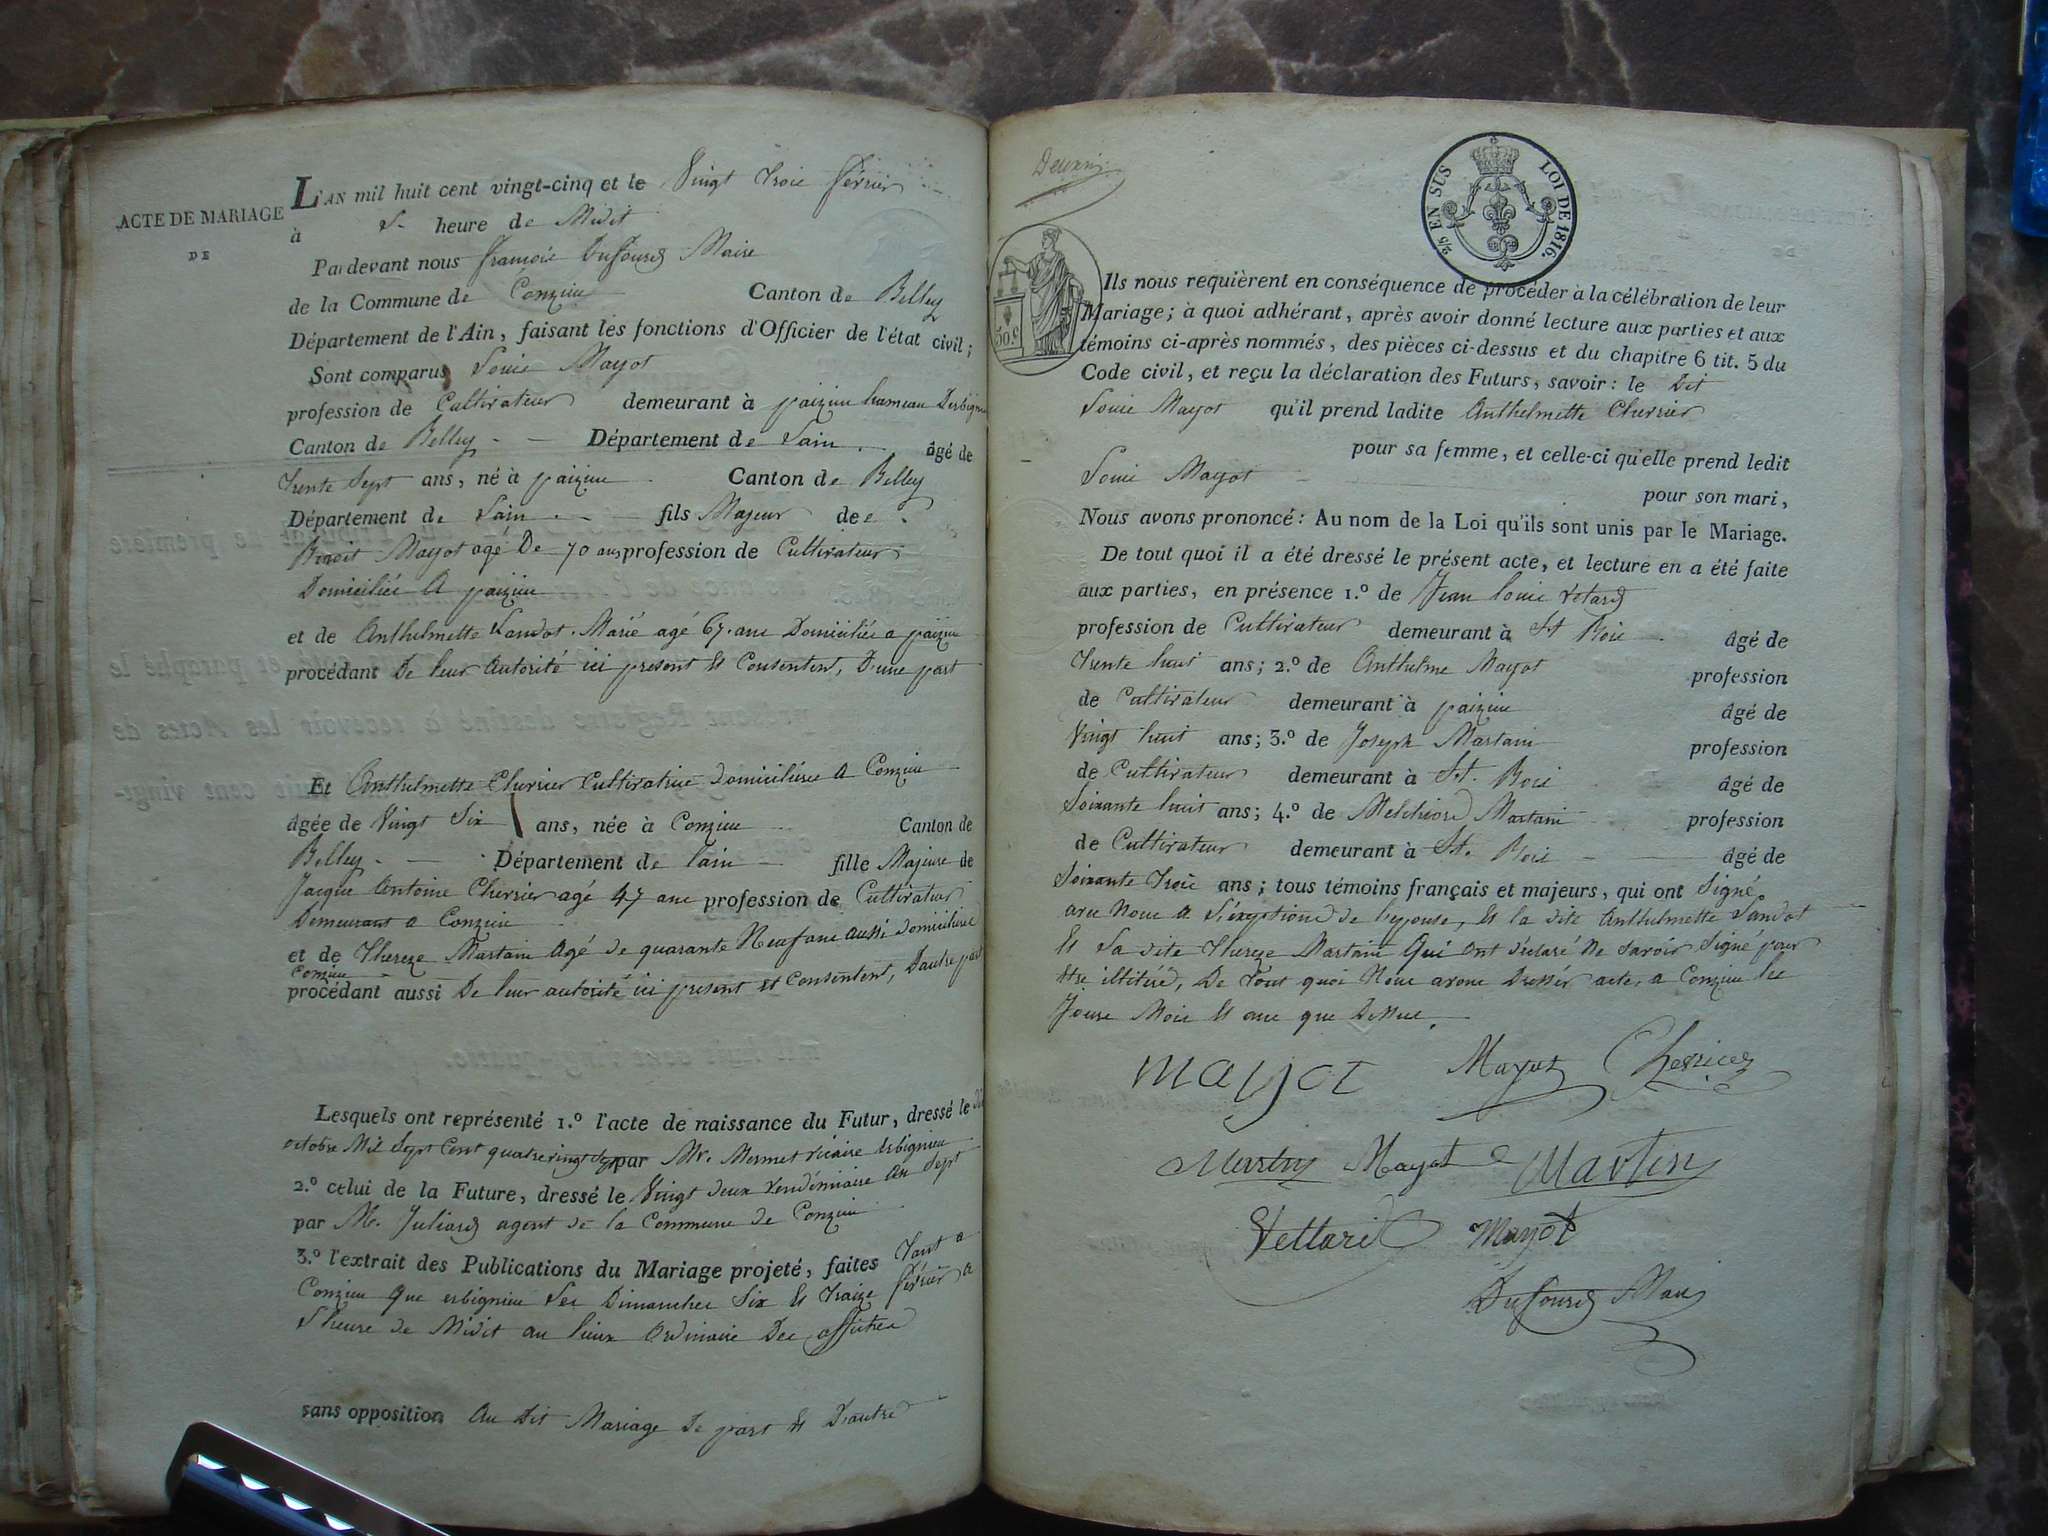 ACTE DE MARIAGE
DE
L'AN mil huit cent vingt-cinq et le Vingt trois février
à heure de Midit
Pardevant nous françois Dufourd Maire
de la Commune de Conzieu Canton de Belley
Département de l'Ain, faisant les fonctions d'Officier de l'état civil;
Sont comparus Louis Mayot
profession de Cultivateur demeurant à paizieu hameau Derbignieu
Canton de Belley Département de Lain âgé de
trente Sept ans, né à paizieu Canton de Belley
Département de Lain fils Majeur de
Benoit Mayot agé De 70 ans profession de Cultivateur
Domiciliée A paizieu
et de Anthelmette Landot Marié agé 67 ans Domiciliée a paizieu
procédant De leur Autorité ici present Et Consentent, D'une part
Et Anthelmette Cherrier Cultivatrice domiciliée A Conzieu
âgée de Vingt Six ans, née à Conzieu Canton de
Belley Département de Lain fille Majeure de
Jacque Antoine Cherrier agé 47 ans profession de Cultivateur
Demeurant a Conzieu
et de Thereze Martain Agé de quarante Neuf ans aussi domiciliée
Conzieu
procédant aussi De leur autorité ici present et Consentent, Dautre part
Lesquels ont représenté 1.º l'acte de naissance du Futur, dressé le
octobre Mil Sept Cent quatrevingt Sept par Mr. Mermet vicaire erbignieu
2.º celui de la Future, dressé le Vingt deux vendémiaire An Sept
par M. Juliard agent de la Commune de Conzieu
3.º l'extrait des Publications du Mariage projeté, faites Tant a
Conzieu Que erbignieu Les Dimanches Six Et traize février a
Lheure de Midit au lieux Ordinaire Des affiches
sans opposition Au dit Mariage De part Et D'autre
2/5 EN SUS LOI DE 1816.
50.c
Ils nous requièrent en conséquence de procéder à la célébration de leur
Mariage; à quoi adhérant, après avoir donné lecture aux parties et aux
témoins ci-après nommés, des pièces ci-dessus et du chapitre 6 tit. 5 du
Code civil, et reçu la déclaration des Futurs, savoir: le Dit
Louis Mayot qu'il prend ladite Anthelmette Cherrier
pour sa femme, et celle-ci qu'elle prend ledit
Louis Mayot pour son mari,
Nous avons prononcé: Au nom de la Loi qu'ils sont unis par le Mariage.
De tout quoi il a été dressé le présent acte, et lecture en a été faite
aux parties, en présence 1.º de Jean Louis Vétard
profession de Cultivateur demeurant à St Bois âgé de
trente huit ans; 2.º de Anthelme Mayot profession
de Cultivateur demeurant à paizieu âgé de
Vingt huit ans; 3.º de Joseph Martain profession
de Cultivateur demeurant à St. Bois âgé de
Soixante huit ans; 4.º de Melchiord Martain profession
de Cultivateur demeurant à St. Bois âgé de
Soixante trois ans; tous témoins français et majeurs, qui ont Signé
avec Nous A L'éxeption de lepouse, Et la dite Anthelmette Landot
Et La dite Thereze Martain Qui ont déclaré Ne savoir Signé pour
être illitéré, De Tout quoi Nous avons Dressér acte, a Conzieu les
Jours Mois Et ans que Dessus.
mayot Mayot Cherrier
Martin Mayot Martin
Vettard Mayot
Dufourd Maire